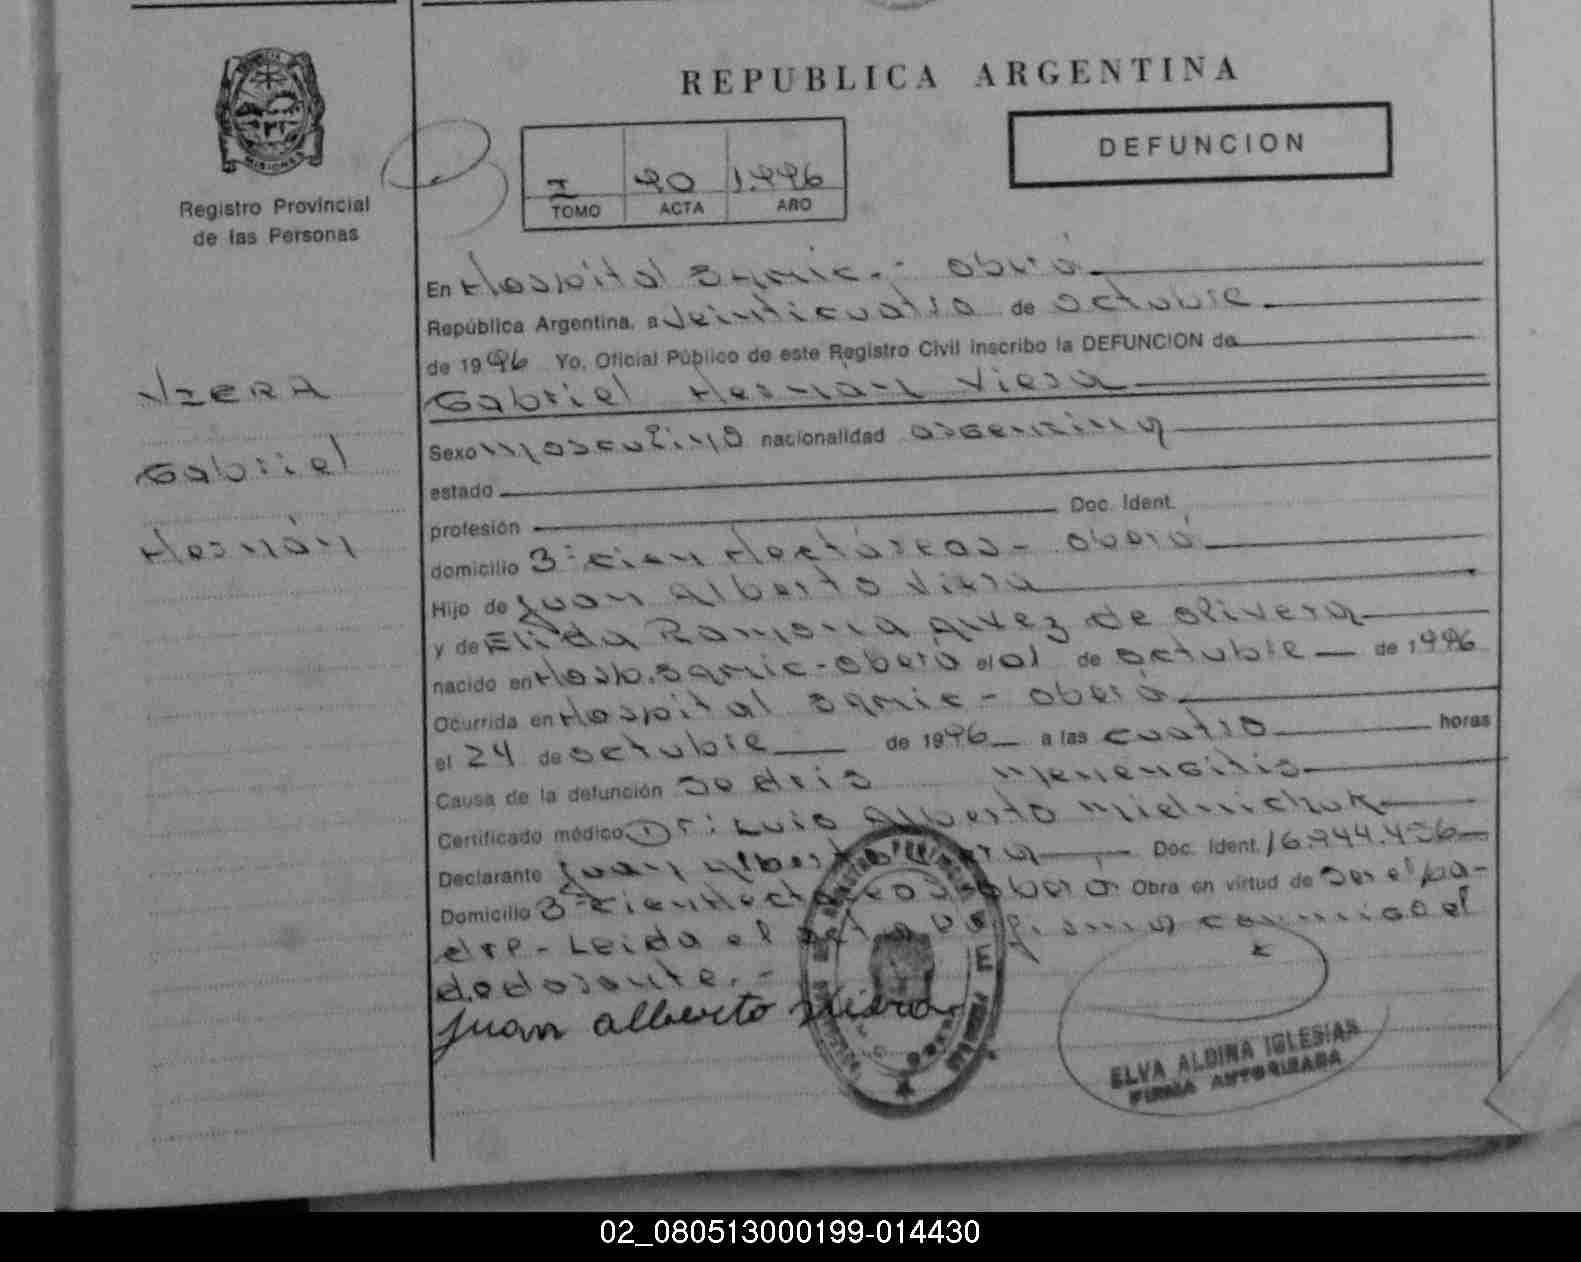 REPUBLICA ARGENTINA
PROVINCIA DE
MISIONES
Registro Provincial
de las Personas
DEFUNCION
I 90 1.996
TOMO ACTA AÑO
En Hospital Samic.- Oberá
República Argentina, a veinticuatro de octubre
de 1996 Yo, Oficial Público de este Registro Civil inscribo la DEFUNCION de
Gabriel Hernán Viera
VIERA
Gabriel
Hernán
Sexo masculino nacionalidad argentina
estado
profesión Doc. Ident.
domicilio 3- cien Hectáreas - Oberá
Hijo de Juan Alberto Viera
y de Elida Ramona de Olivera
nacido en Hosp. Samic - Oberá el 01 de octubre de 1996
Ocurrida en Hospital Samic - Oberá
el 24 de octubre de 1996 a las cuatro horas
Causa de la defunción
Certificado médico Dr: Luis Alberto Mielnichuk
Declarante Juan Alberto Viera Doc. Ident. 16.944.456
Domicilio 3- cien Hectáreas Oberá Obra en virtud de ser el pa-
dre - Leida el acta la firma conmigo el
juan alberto viera
ELVA ALBINA IGLESIAS
FIRMA AUTORIZADA
02_080513000199-014430